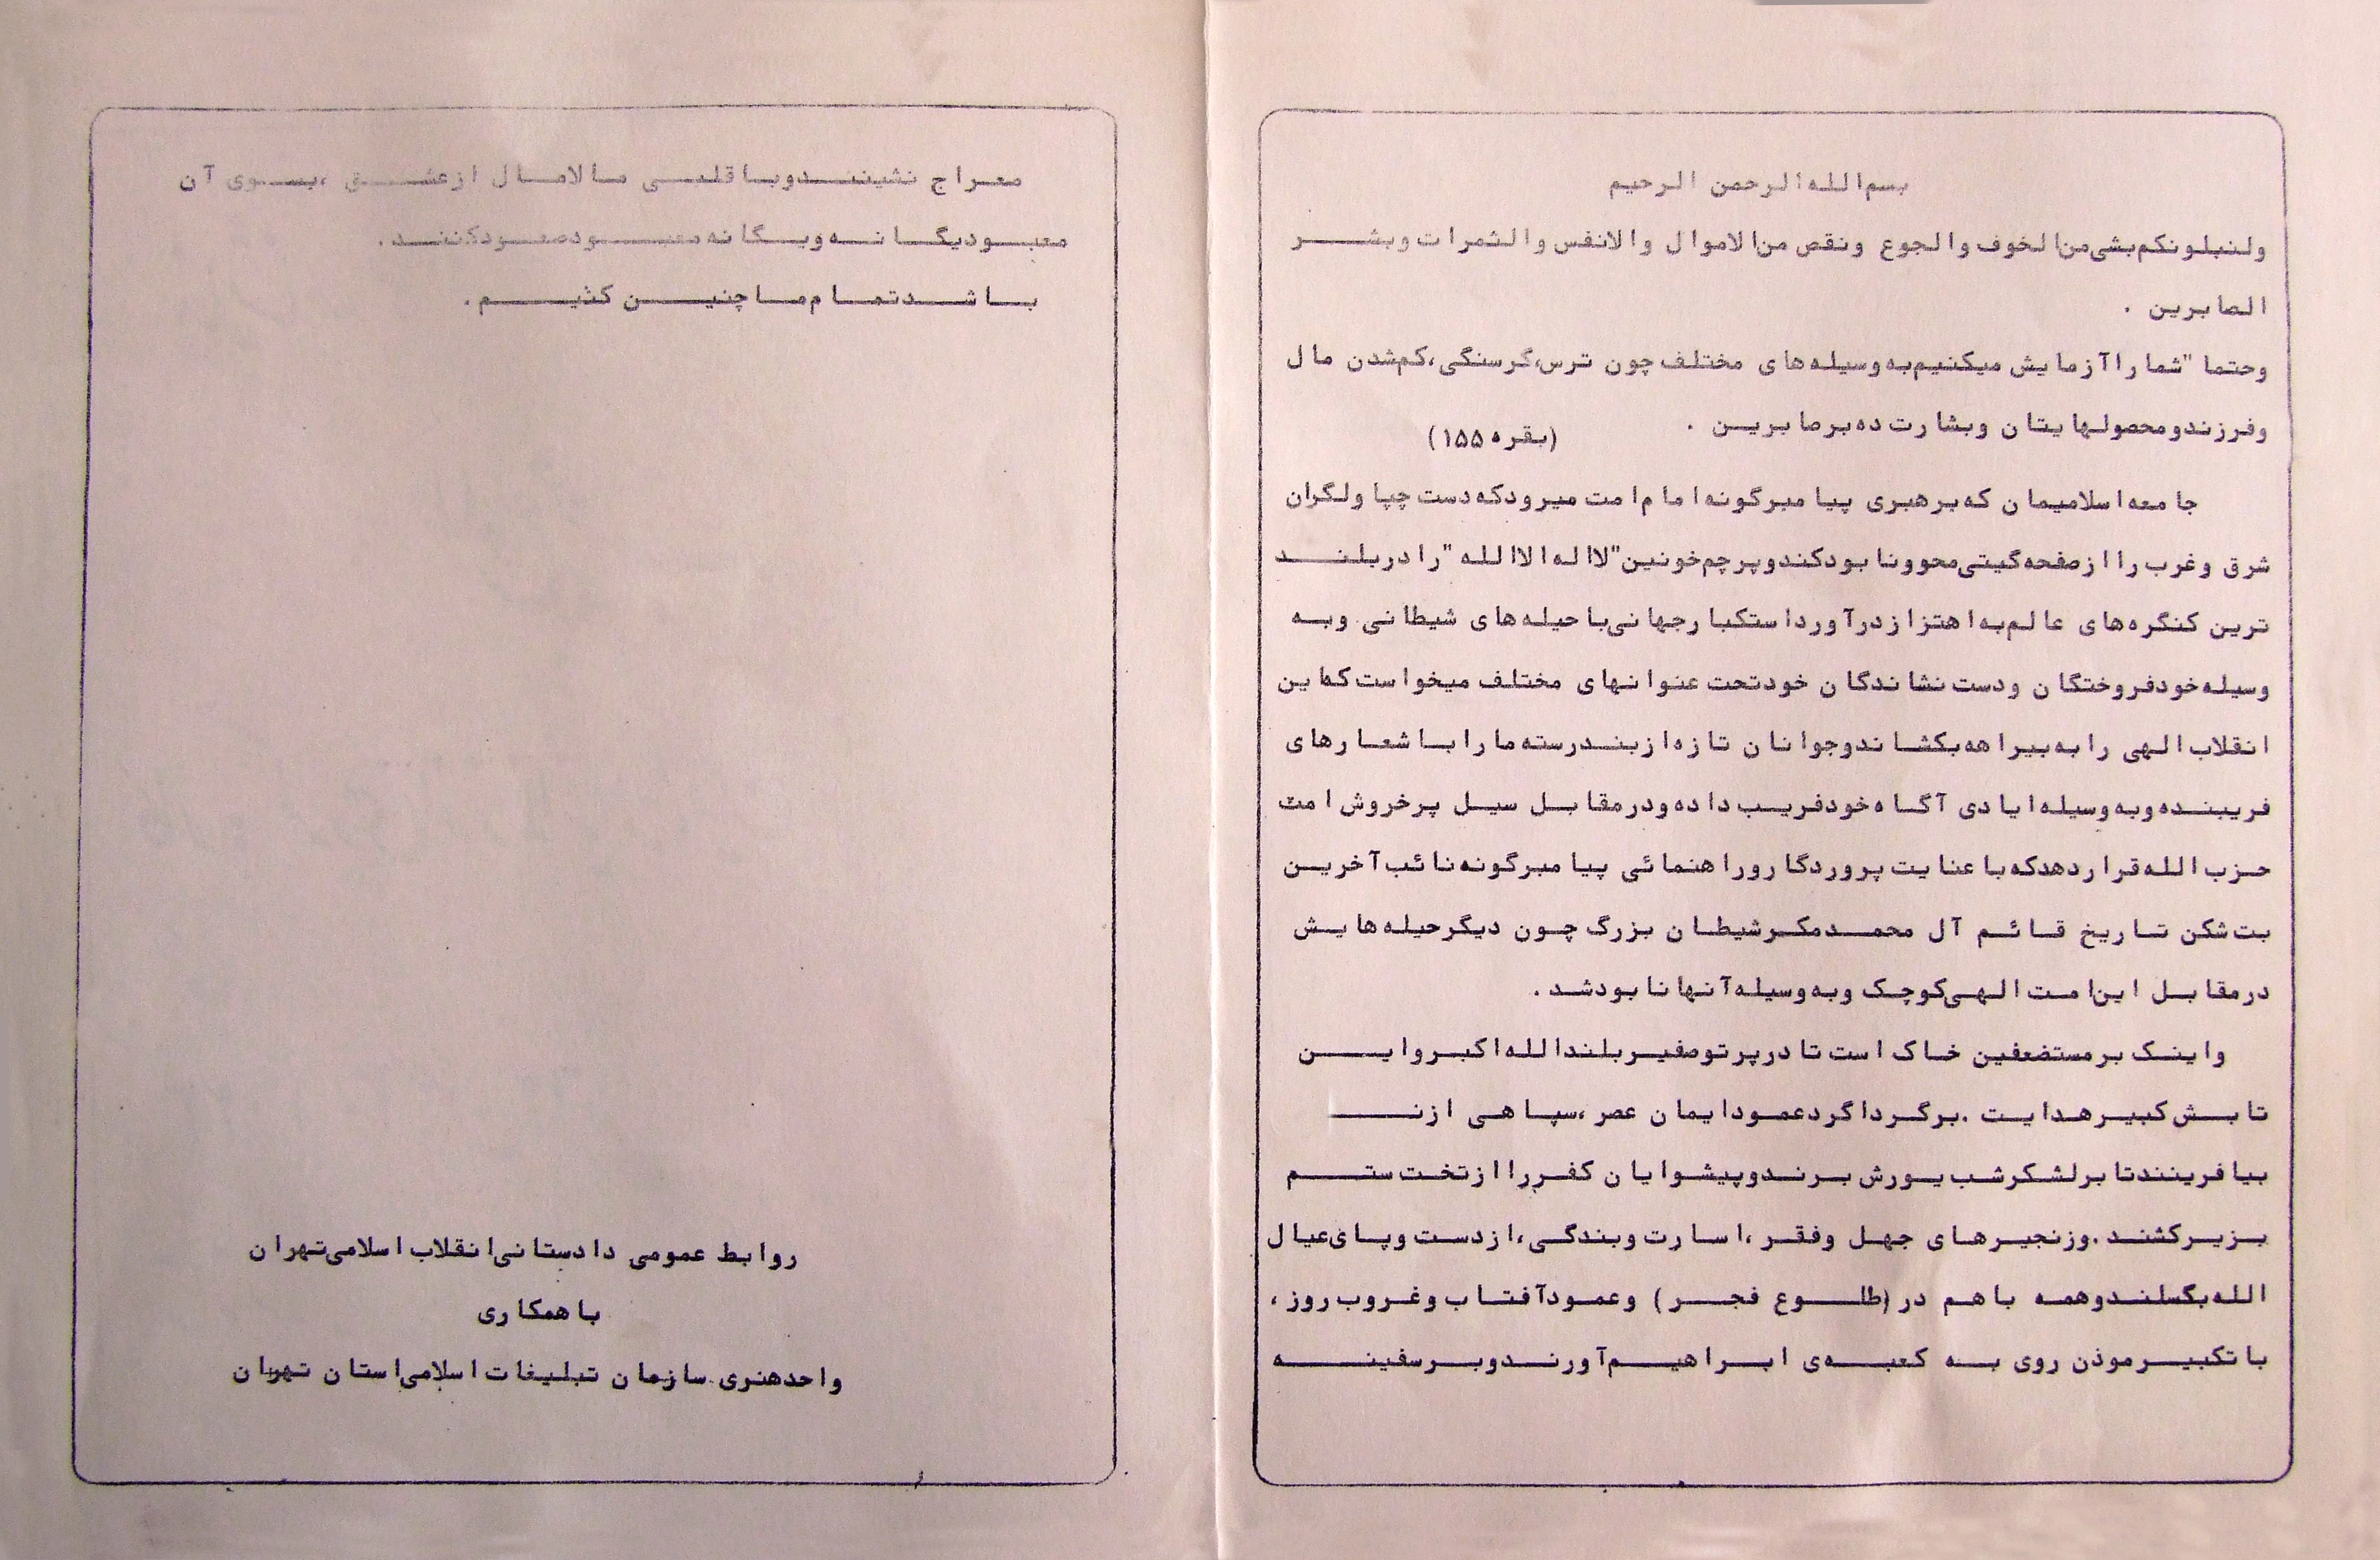 بسم الله الرحمن الرحیم
ولنبلونکم بشی من الخوف والجوع ونقص من الاموال والانفس والثمرات وبشر
الصابرین .
وحتما" شما را آزمایش میکنیم به وسیله های مختلف چون ترس،گرسنگی،کم شدن مال
وفرزند ومحصولهایتان وبشارت ده بر صابرین . (بقره ۱۵۵)
جامعه اسلامیمان که برهبری پیامبرگونه امام امت میرود که دست چپاولگران
شرق وغرب را از صفحه گیتی محو ونابود کند وپرچم خونین "لااله الاالله" را در بلند
ترین کنگره های عالم به اهتزاز درآورد استکبار جهانی با حیله های شیطانی وبه
وسیله خودفروختگان ودست نشاندگان خود تحت عنوانهای مختلف میخواست که این
انقلاب الهی را به بیراهه بکشاند وجوانان تازه از بند رسته ما را با شعارهای
فریبنده وبه وسیله ایادی آگاه خود فریب داده ودر مقابل سیل پرخروش امت
حزب الله قرار دهد که با عنایت پروردگار وراهنمائی پیامبرگونه نائب آخرین
بت شکن تاریخ قائم آل محمد مکر شیطان بزرگ چون دیگر حیله هایش
در مقابل این امت الهی کوچک وبه وسیله آنها نابود شد .
واینک بر مستضعفین خاک است تا در پرتو صفیر بلند الله اکبر واین
تابش کبیر هدایت .برگرداگرد عمود ایمان عصر ،سپاهی از نـ
بیافرینند تا بر لشکر شب یورش برند وپیشوایان کفر را از تخت ستم
بزیر کشند .وزنجیرهای جهل وفقر ،اسارت وبندگی،از دست وپای عیال
الله بگسلند وهمه با هم در (طلوع فجر) وعمود آفتاب وغروب روز ،
با تکبیر موذن روی به کعبه ی ابراهیم آورند وبر سفینه
معراج نشینند وبا قلبی مالامال از عشق ،بسوی آن
معبود یگانه ویگانه معبود صعود کنند .
باشد تمام ما چنین کنیم .
روابط عمومی دادستانی انقلاب اسلامی تهران
با همکاری
واحد هنری سازمان تبلیغات اسلامی استان تهران